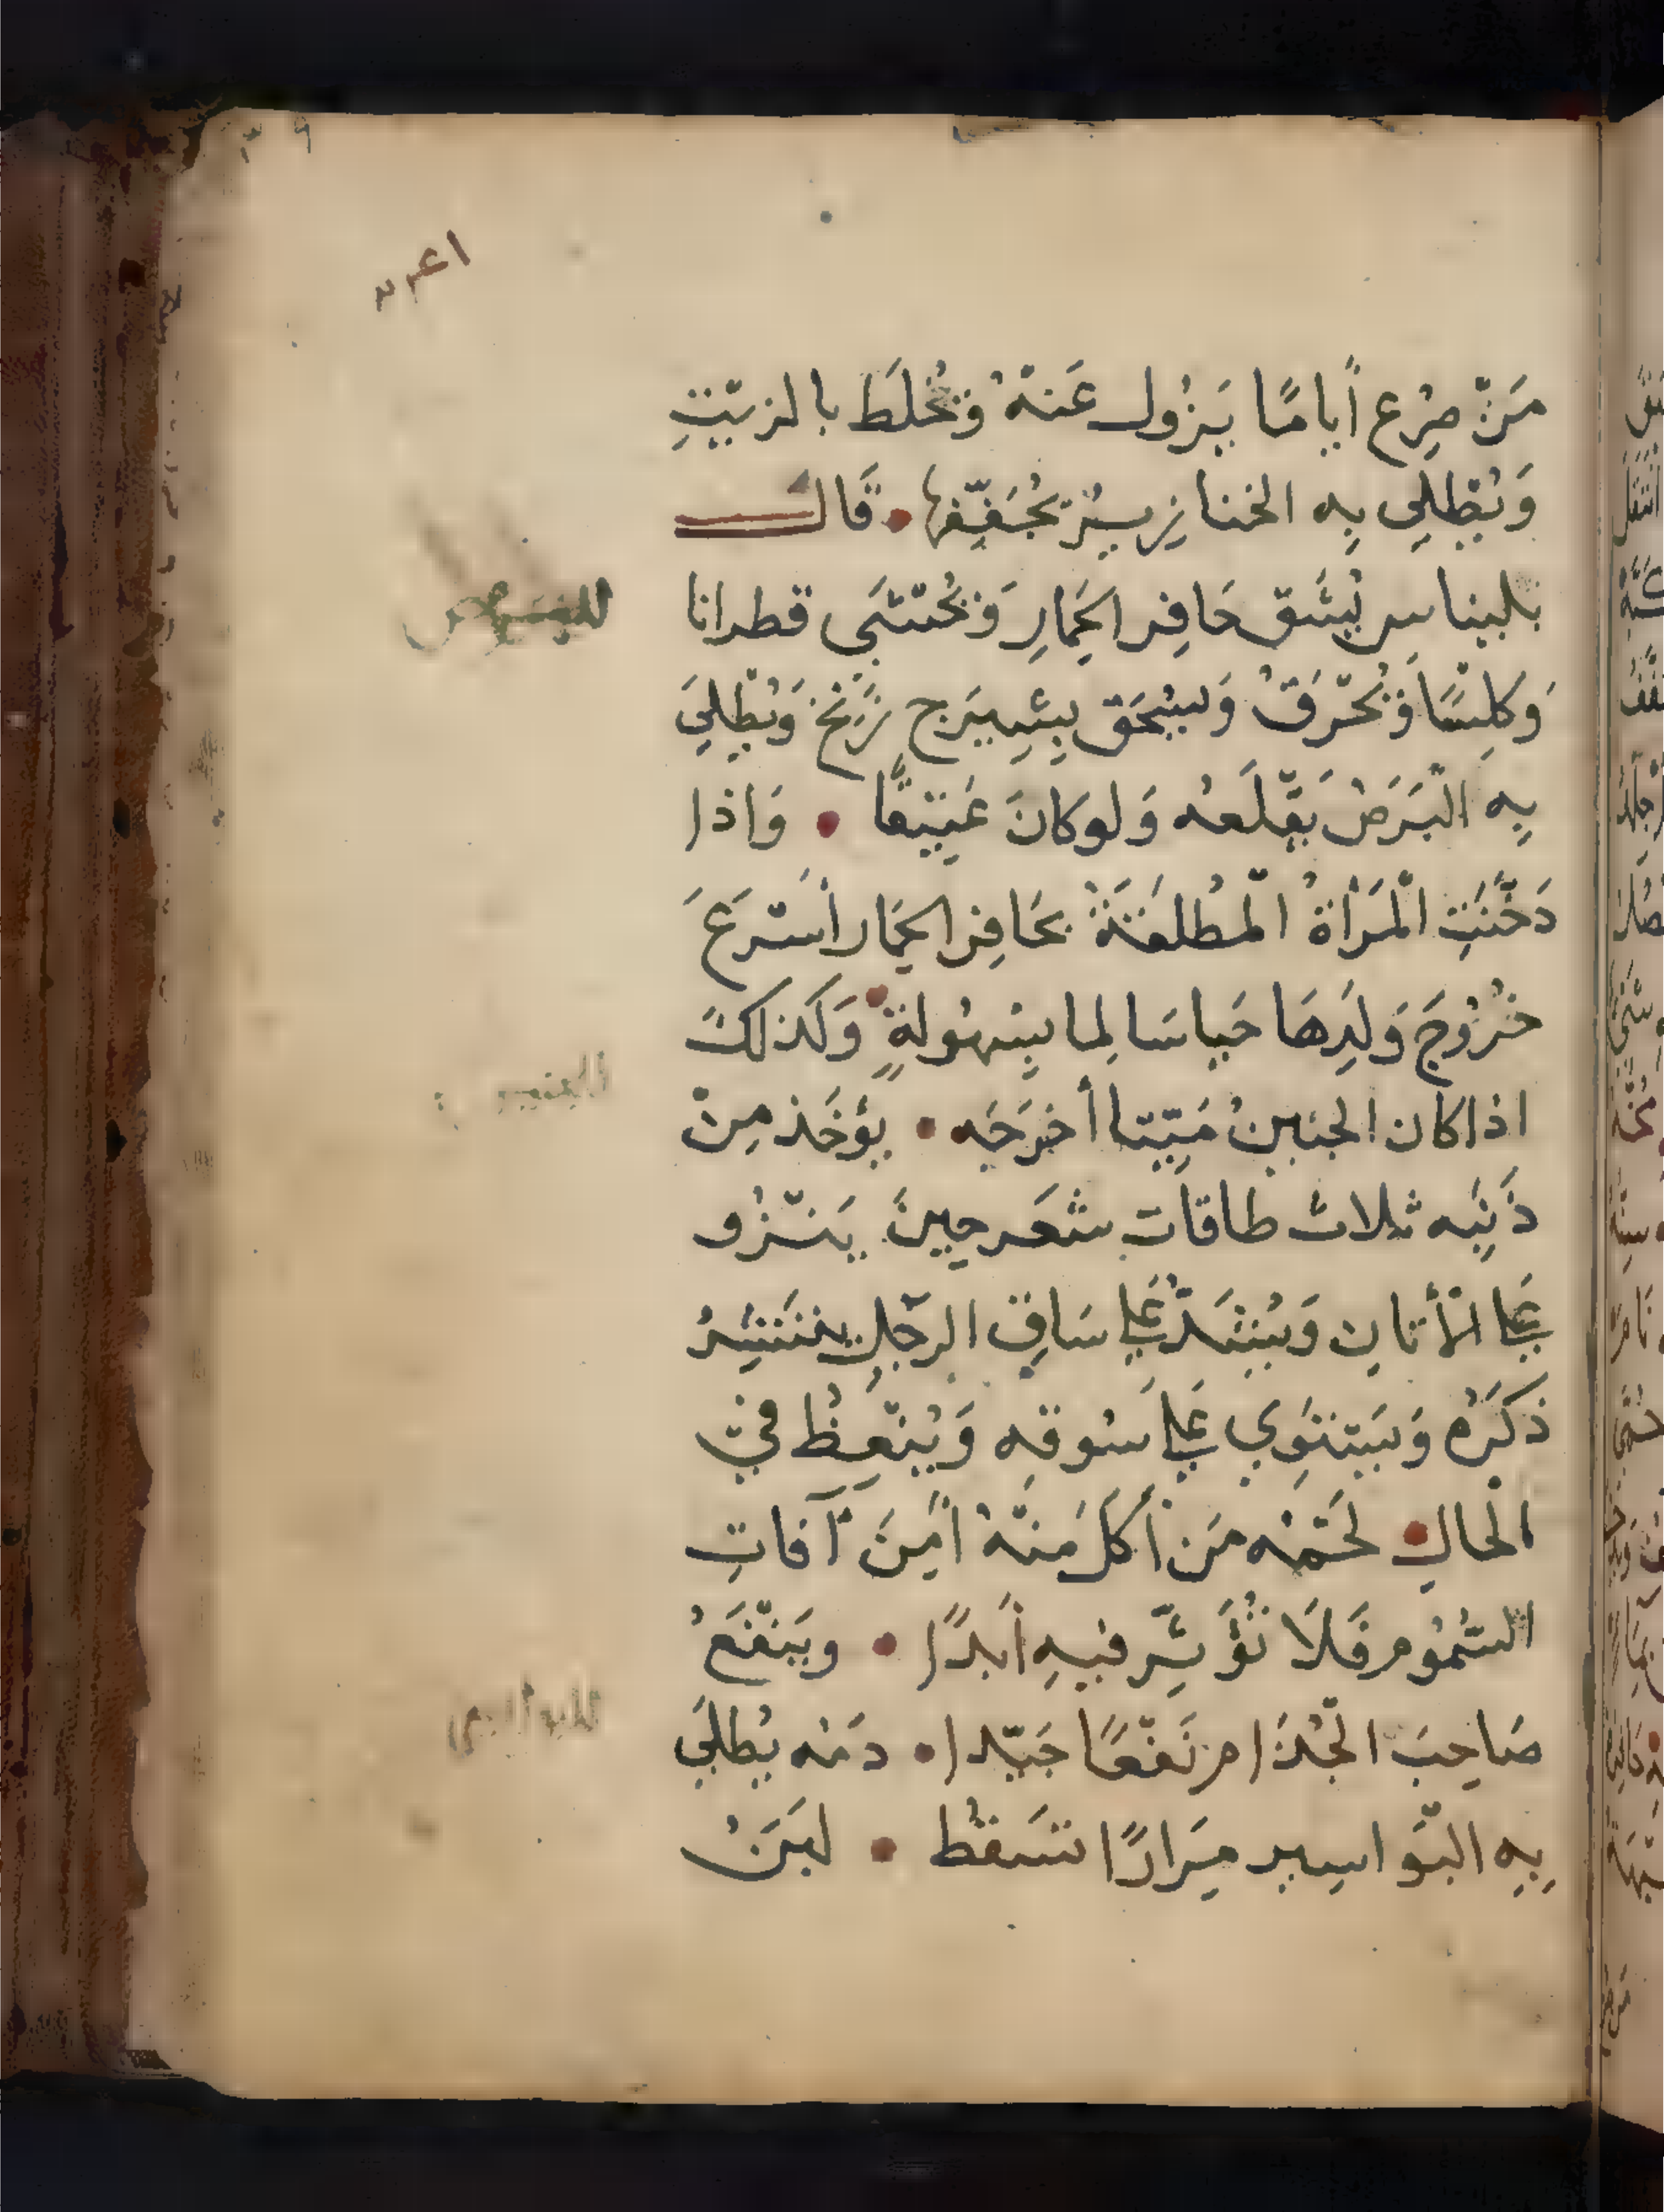 مَنْ صُرِع أيامًا يَزُول عَنهُ وَيُخْلَط بالزيْتِ
وَيُطْلى بِه الخنازِير يُجَفِّفها • قَال
بليناس يُشَق حَافِر الحِمارِ وَيُحْشَى قطرانا
وَكِلسًا وَيُحْرَقُ وَيُسْحَق بِشِيرَج زَنِخ وَيُطْلَى
بِه الْبَرَصُ يَقْلَعُه وَلو كانَ عَتِيقًا • وَاذا
دَخَّنَتِ الْمَرْأةُ الْمُطلِقَةُ بحَافِر الحِمَار أسْرَعَ
خُرُوجَ وَلَدِهَا حَيا سَالِما بِسُهُولَةٍ • وَكَذلكَ
اذا كان الجنينُ مَيّتا أخرَجَه • يُؤخَذ مِنْ
ذَنَبِه ثلاث طاقات شعَر حِينَ يَنْزُو
عَلى الأتانِ وَيُشَدّ عَلى سَاقِ الرجُلِ يَنتَشِرُ
ذكَرُه وَيَستَوِي عَلى سُوقه وَيُنْعِظُ في
الحال • لَحْمُه مَن أكَلَ مِنْهُ أمِنَ آفاتِ
السُمُوم فَلَا تُؤَثِّر فيهِ أبدًا • وَيَنْفَعُ
صَاحِبَ الجُذَام نَفْعًا جَيّدا • دَمُه يُطلَى
بِهِ البَوَاسِير مِرَارًا تَسقُط • لبَنُ